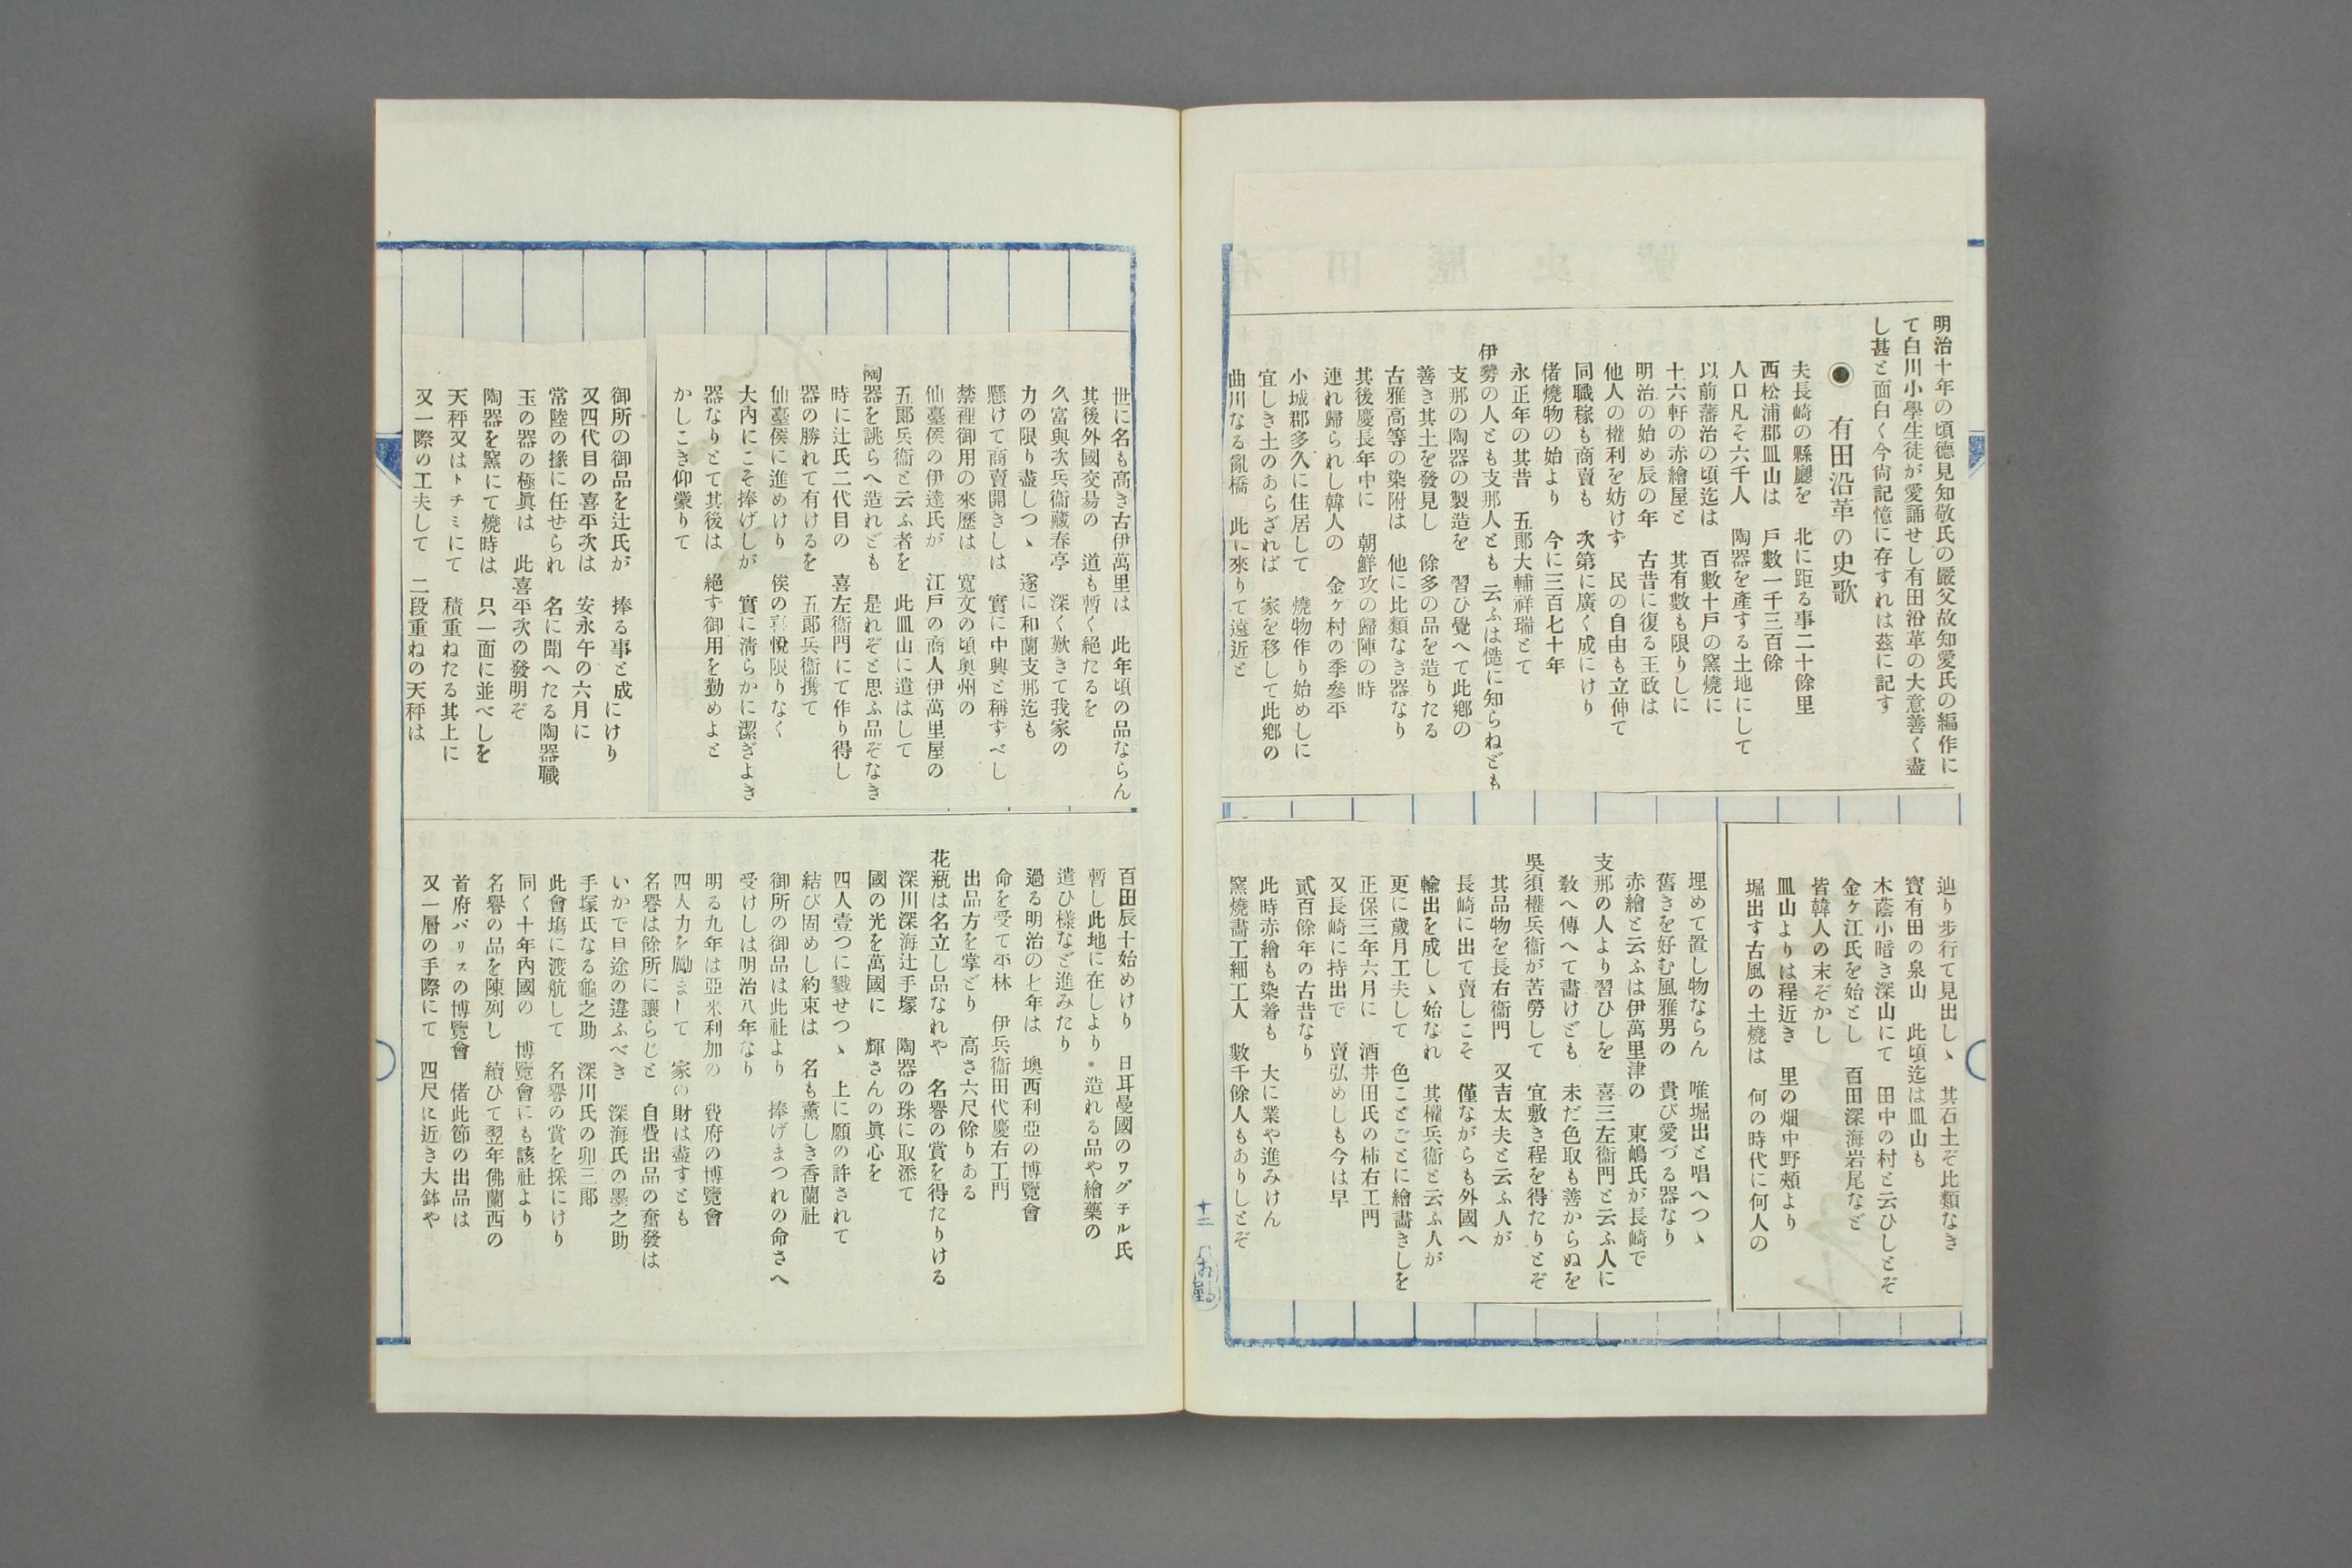 明治十年の頃德見知敬氏の嚴父故知愛氏の編作に
て白川小學生徒が愛誦せし有田沿革の大意善く盡
し甚と面白く今尙記憶に存すれは茲に記す
◉ 有田沿革の史歌
夫長崎の縣廳を 北に距る事二十餘里
西松浦郡皿山は 戶數一千三百餘
人口凡そ六千人 陶器を產する土地にして
以前藩治の頃迄は 百數十戶の窯燒に
十六軒の赤繪屋と 其有數も限りしに
明治の始め辰の年 古昔に復る王政は
他人の權利を妨けず 民の自由も立伸て
同職稼も商賣も 次第に廣く成にけり
偖燒物の始より 今に三百七十年
永正年の其昔 五郞大輔祥瑞とて
伊勢の人とも支那人とも 云ふは慥に知らねども
支那の陶器の製造を 習ひ覺へて此鄕の
善き其土を發見し 餘多の品を造りたる
古雅高等の染附は 他に比類なき器なり
其後慶長年中に 朝鮮攻の歸陣の時
連れ歸られし韓人の 金ヶ村の季參平
小城郡多久に住居して 燒物作り始めしに
宜しき土のあらざれば 家を移して此鄕の
曲川なる亂橋 此に來りて遠近と
辿り步行て見出しゝ 其石土ぞ比類なき
實有田の泉山 此頃迄は皿山も
木蔭小暗き深山にて 田中の村と云ひしとぞ
金ヶ江氏を始とし 百田深海岩尾など
皆韓人の末ぞかし
皿山よりは程近き 里の畑中野頰より
堀出す古風の土燒は 何の時代に何人の
埋めて置し物ならん 唯堀出と唱へつゝ
舊きを好む風雅男の 貴び愛づる器なり
赤繪と云ふは伊萬里津の 東嶋氏が長崎で
支那の人より習ひしを 喜三左衞門と云ふ人に
敎へ傳へて畵けども 未だ色取も善からぬを
吳須權兵衞が苦勞して 宜敷き程を得たりとぞ
其品物を長右衞門 又吉太夫と云ふ人が
長崎に出て賣しこそ 僅ながらも外國へ
輸出を成しゝ始なれ 其權兵衞と云ふ人が
更に歲月工夫して 色ことごとに繪畵きしを
正保三年六月に 酒井田氏の柿右工門
又長崎に持出で 賣弘めしも今は早
貳百餘年の古昔なり
此時赤繪も染着も 大に業や進みけん
窯燒畵工細工人 數千餘人もありしとぞ
十二
世に名も高き古伊萬里は 此年頃の品ならん
其後外國交易の 道も暫く絕たるを
久富與次兵衞藏春亭 深く歎きて我家の
力の限り盡しつゝ 遂に和蘭支那迄も
懸けて商賣開きしは 實に中興と稱すべし
禁裡御用の來歷は 寬文の頃奧州の
仙臺侯の伊達氏が 江戶の商人伊萬里屋の
五郞兵衞と云ふ者を 此皿山に遣はして
陶器を誂らへ造れども 是れぞと思ふ品ぞなき
時に辻氏二代目の 喜左衞門にて作り得し
器の勝れて有けるを 五郞兵衞携て
仙臺侯に進めけり 侯の喜悅限りなく
大內にこそ捧げしが 實に淸らかに潔ぎよき
器なりとて其後は 絕ず御用を勤めよと
かしこき仰蒙りて
御所の御品を辻氏が 捧る事と成にけり
又四代目の喜平次は 安永午の六月に
常陸の掾に任ぜられ 名に聞へたる陶器職
玉の器の極眞は 此喜平次の發明ぞ
陶器を窯にて燒時は 只一面に並べしを
天秤又はトチミにて 積重ねたる其上に
又一際の工夫して 二段重ねの天秤は
百田辰十始めけり 日耳曼國のワグチル氏
暫し此地に在しより 造れる品や繪藥の
遣ひ樣など進みたり
過る明治の七年は 墺西利亞の博覽會
命を受て平林 伊兵衞田代慶右工門
出品方を掌どり 高さ六尺餘りある
花瓶は名立し品なれや 名譽の賞を得たりける
深川深海辻手塚 陶器の珠に取添て
國の光を萬國に 輝さんの眞心を
四人壹つに戮せつゝ 上に願の許されて
結び固めし約束は 名も薰しき香蘭社
御所の御品は此社より 捧げまつれの命さへ
受けしは明治八年なり
明る九年は亞米利加の 費府の博覽會
四人力を勵まして 家の財は盡すとも
名譽は餘所に讓らじと 自費出品の奮發は
いかで目途の違ふべき 深海氏の墨之助
手塚氏なる龜之助 深川氏の卯三郞
此會塲に渡航して 名譽の賞を採にけり
同く十年內國の 博覽會にも該社より
名譽の品を陳列し 續ひて翌年佛蘭西の
首府パリスの博覽會 偖此節の出品は
又一層の手際にて 四尺に近き大鉢や